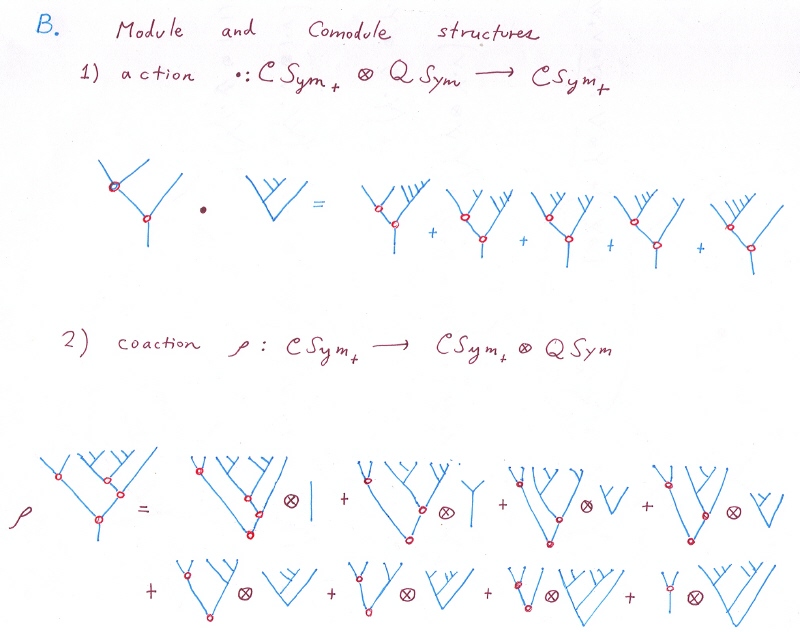 B. Module and Comodule structures
1) action •: CSym₊ ⊗ QSym → CSym₊
• = + + + +
2) coaction ρ: CSym₊ → CSym₊ ⊗ QSym
ρ = ⊗ + ⊗ + ⊗ + ⊗
+ ⊗ + ⊗ + ⊗ + ⊗